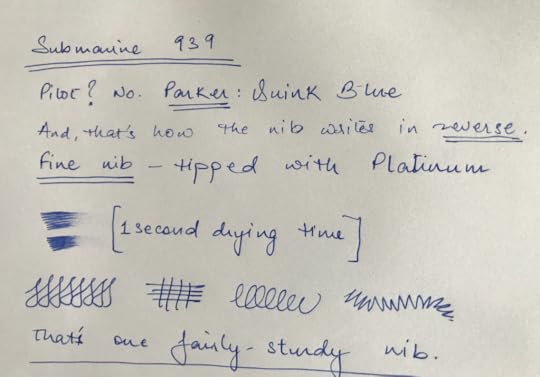 Submarine 939
Pilot? No. Parker: Quink Blue
And, that's how the nib writes in reverse.
Fine nib – tipped with Platinum
[1 second drying time]
That's one fairly-sturdy nib.